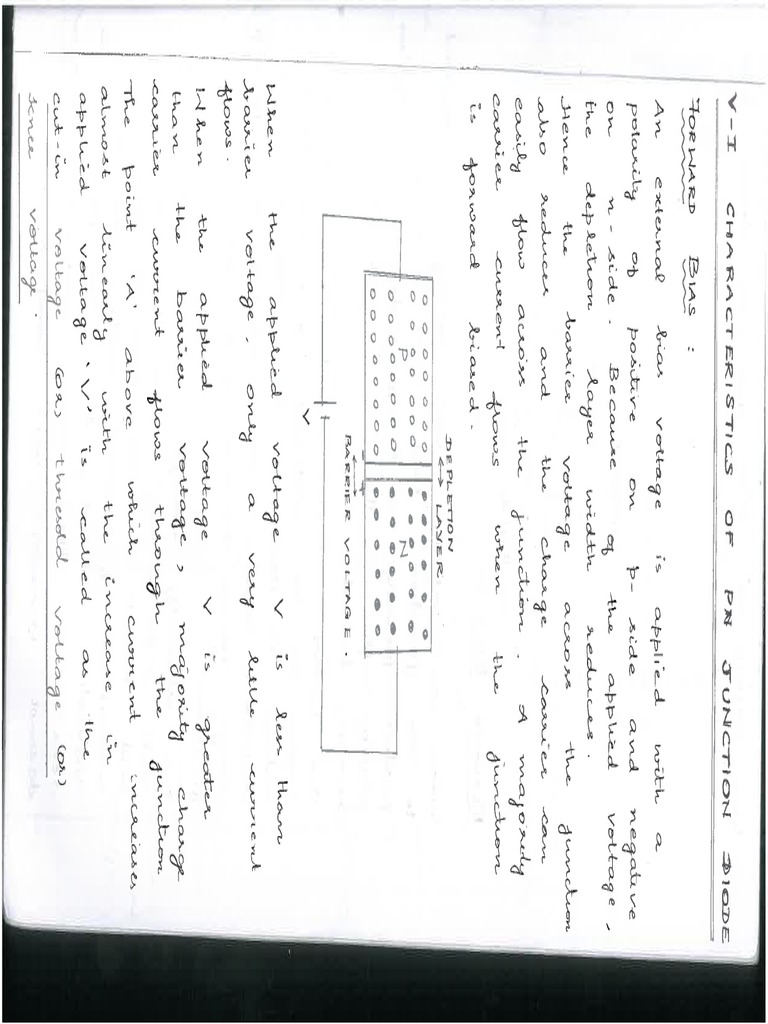 V-I CHARACTERISTICS OF PN JUNCTION DIODE
FORWARD BIAS :
An external bias voltage is applied with a
polarity of positive on p-side and negative
on n-side. Because of the applied voltage,
the depletion layer width reduces.
Hence the barrier voltage across the junction
also reduces and the charge carrier can
easily flow across the junction. A majority
carrier current flows when the junction
is forward biased.
DEPLETION
LAYER
P
N
BARRIER VOLTAGE.
V
When the applied voltage V is less than
barrier voltage, only a very little current
flows.
When the applied voltage V is greater
than the barrier voltage, majority charge
carrier current flows through the junction
The point 'A' above which current increases
almost linearly with the increase in
applied voltage 'V' is called as the
cut-in voltage (or) thresold voltage (or)
knee voltage.